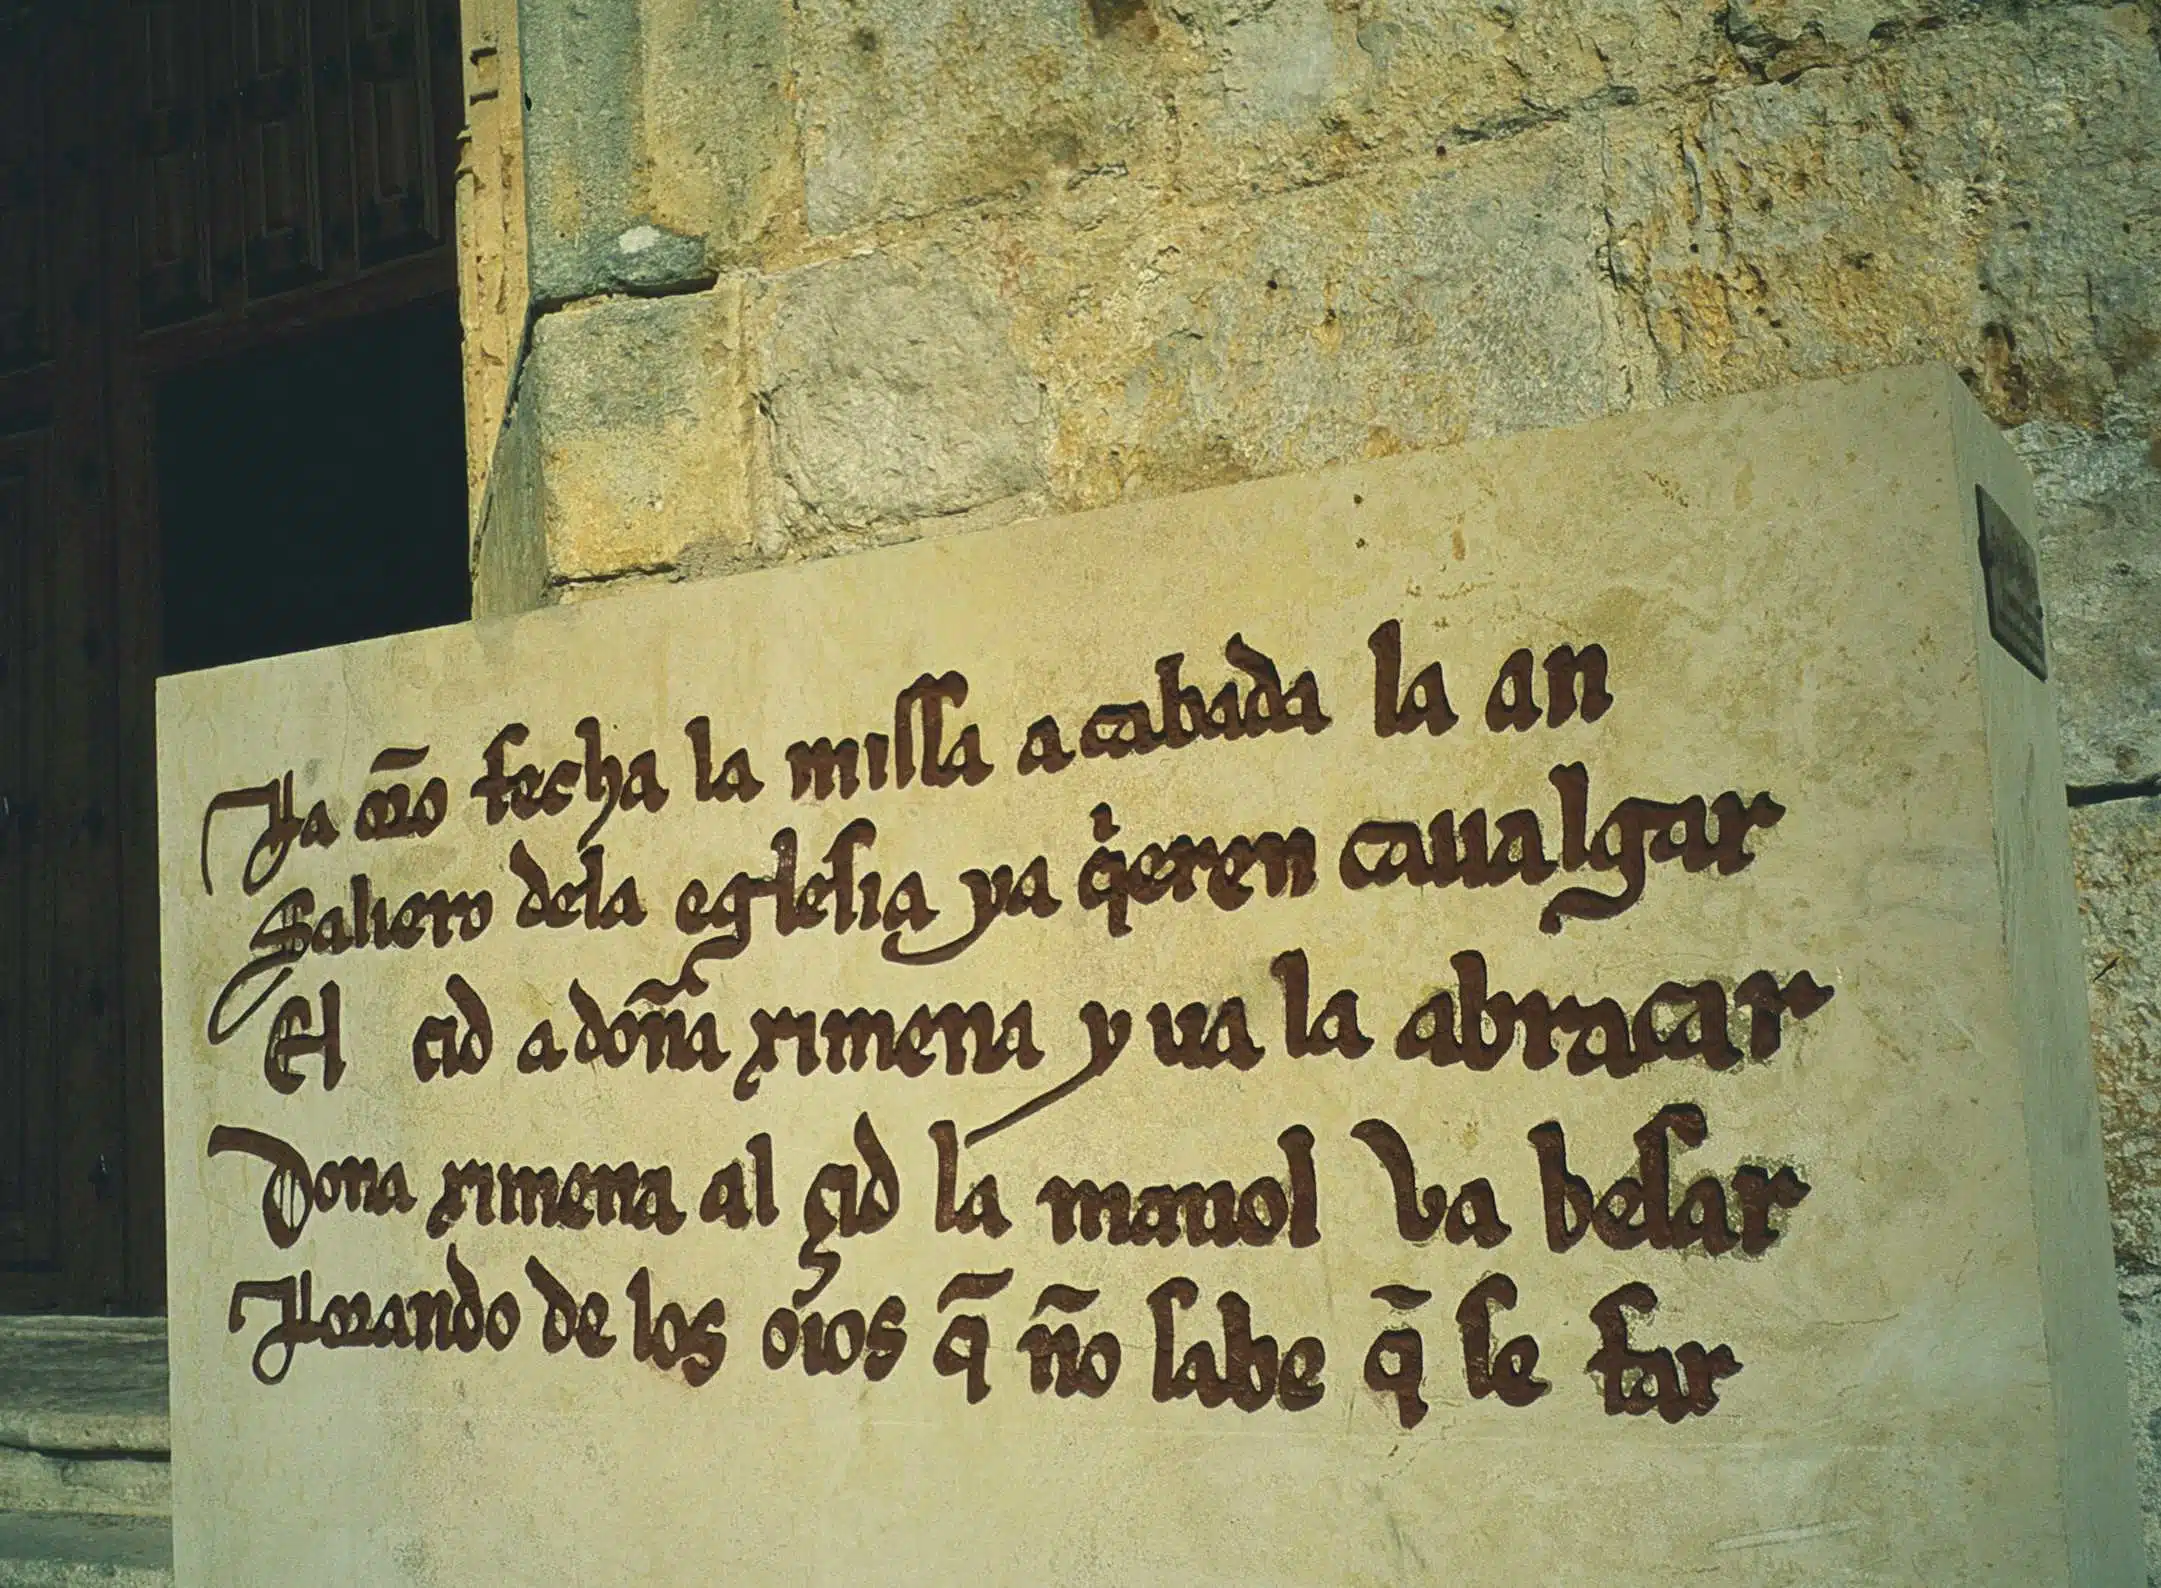 La oraçõ fecha la missa acabada la an
Salieron dela eglesia ya q̃eren caualgar
El cid a doña ximena yua la abraçar
Dona ximena al çid la manol va besar
lorando de los oios q̃ ño sabe q̃ se far